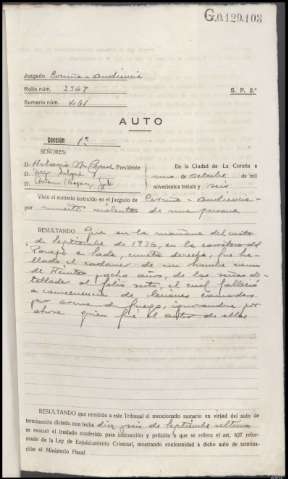 G.0129.103
Juzgado Coruña - Audiencia
Rollo núm. 2367
Sumario núm. 441
S. P. 2ª
AUTO
Sección 1ª
SEÑORES:
D. Presidente
D.
D.
En la Ciudad de La Coruña a
uno de octubre de mil
novecientos treinta y seis
Visto el sumario instruido en el Juzgado de Coruña - Audiencia -
por muerte violenta de una persona
RESULTANDO: Que en la mañana del
de Septiembre de 1936, en la carretera del
a lado, cuneta derecha, fue ha-
llado el cadáver de un hombre como
de treinta y ocho años, de las señas de-
talladas al folio siete, el cual falleció
a consecuencia de lesiones causadas
por arma de fuego, ignorándose por
ahora quien fué el autor de ellas
RESULTANDO que remitido a este Tribunal el mencionado sumario en virtud del auto de
terminación dictado con fecha diez de Septiembre último
se evacuó el traslado conferido para instrucción y petición a que se refiere el art. 627 refor-
mado de la Ley de Enjuiciamiento Criminal, mostrando conformidad a dicho auto de termina-
ción el Ministerio Fiscal